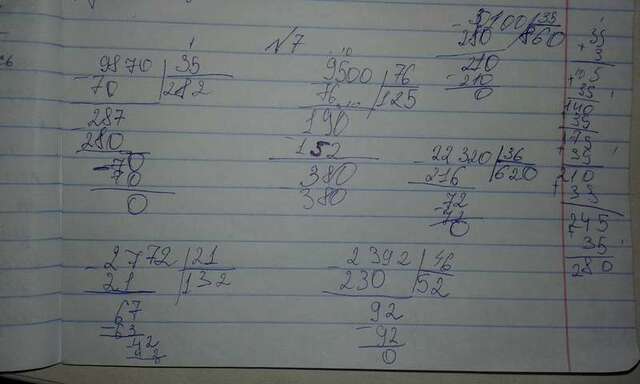 №7
9870 | 35
70 | 282
287
280
70
70
0
9500 | 76
76 | 125
190
152
380
380
35
280 | 860
210
210
0
22320 | 36
216 | 620
72
72
0
2772 | 21
21 | 132
67
63
42
2392 | 46
230 | 52
92
92
0
35
35
210
35
245
35
280